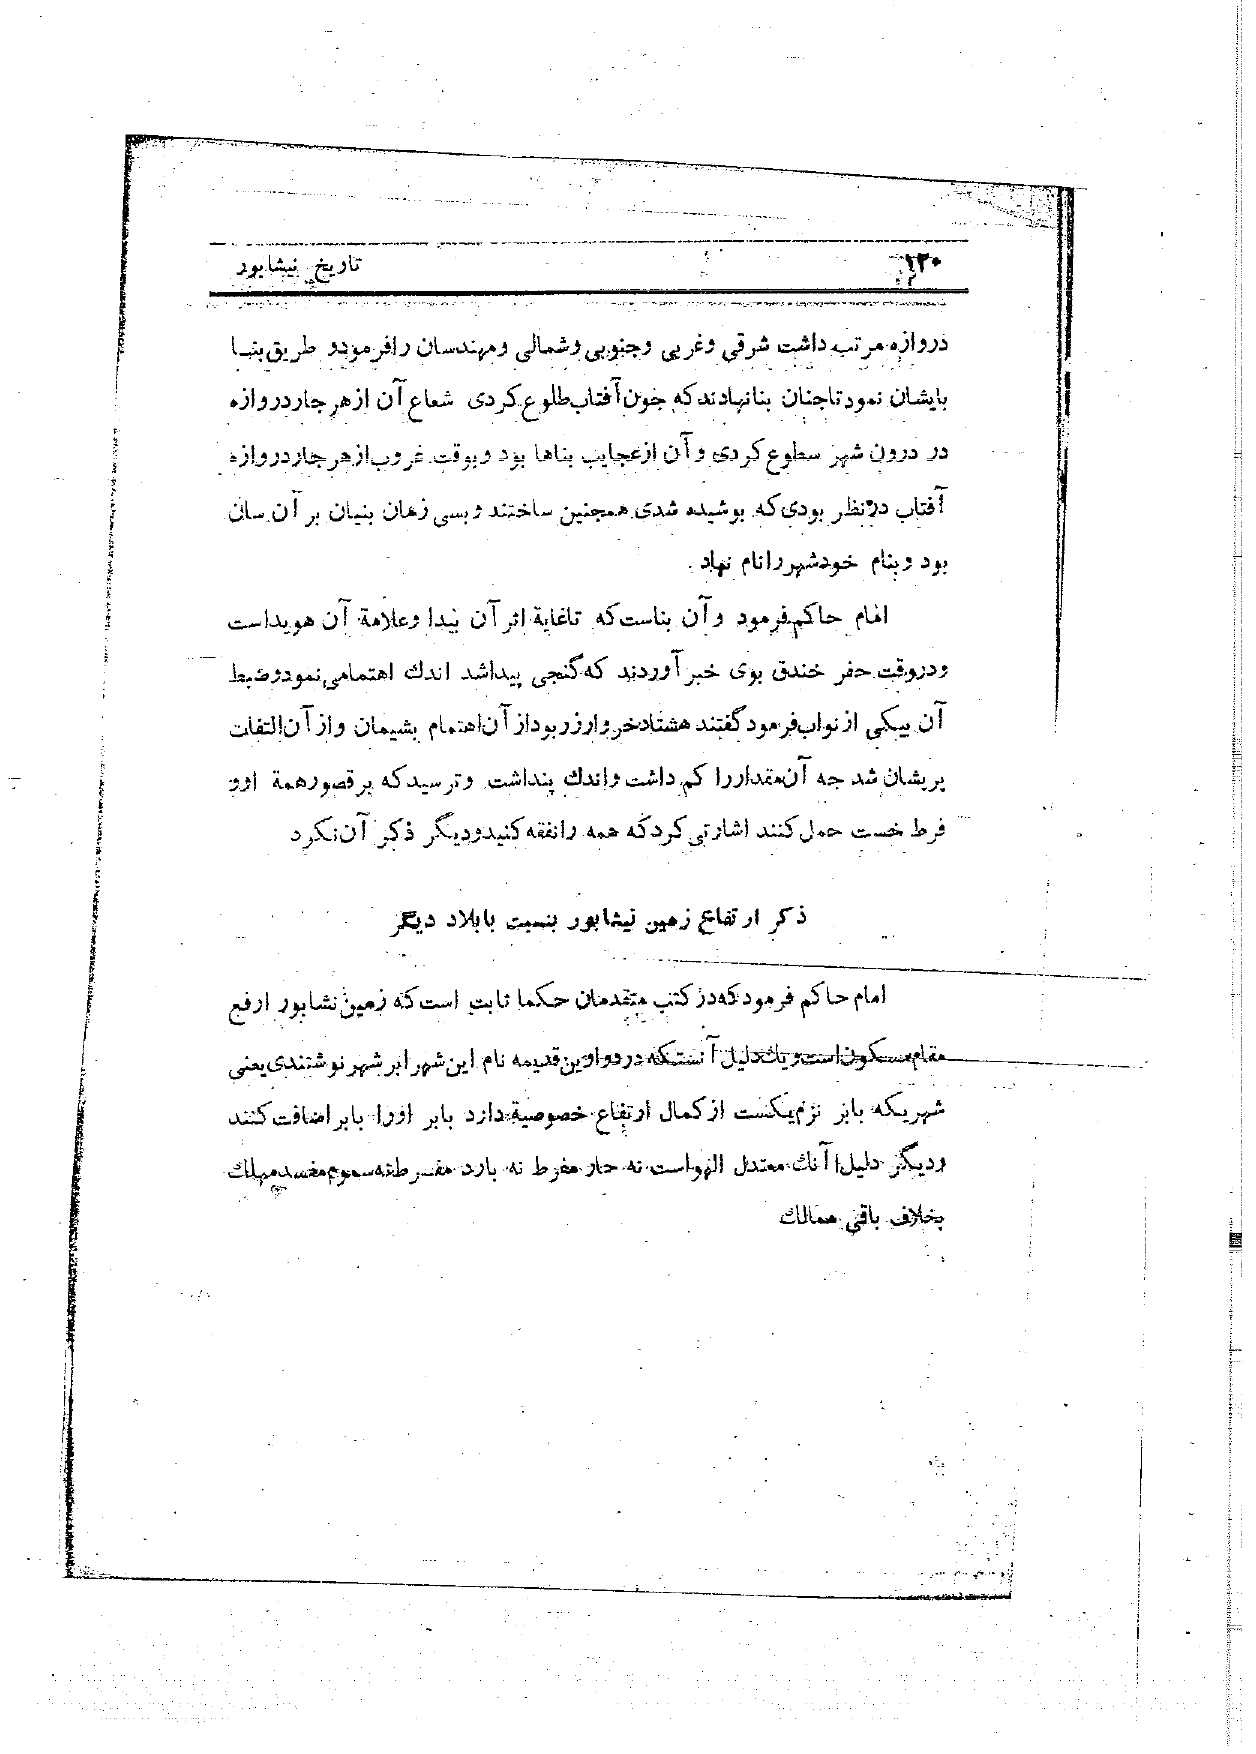 ۱۲۰
تاریخ نیشابور
دروازه مرتب داشت شرقی وغربی وجنوبی وشمالی ومهندسان رافرمودو طریق بنا
بایشان نمود تاجنان بنانهادند که جون آفتاب طلوع کردی شعاع آن ازهر جاردروازه
در درون شهر سطوع کردی وآن ازعجایب بناها بود وبوقت غروب ازهر جاردروازه
آفتاب درنظر بودی که بوشیده شدی همجنین ساختند وبسی زمان بنیان بر آن سان
بود وبنام خودشهررانام نهاد .
امام حاکم فرمود وآن بناست که تاغایة اثر آن بیدا وعلامة آن هویداست
ودروقت حفر خندق بوی خبر آوردند که گنجی پیداشد اندك اهتمامی نمودوضبط
آن بیکی از نواب فرمود گفتند هشتادخروارزر بوداز آن اهتمام بشیمان واز آن التفات
بریشان شد جه آن مقداررا کم داشت واندك پنداشت وترسید که بر قصورهمة اوو
فرط خست حمل کنند اشارتی کرد که همه رانفقه کنیدودیگر ذکر آن نکرد
ذکر ارتفاع زمین نیشابور بنسبت بابلاد دیگر
امام حاکم فرمود که در کتب متقدمان حکما ثابت است که زمین نشابور ارفع
مقام مسکون است ویك دلیل آنستکه دردواوین قدیمه نام این شهر ابر شهر نوشتندی یعنی
شهریکه بابر نزدیکست از کمال ارتفاع خصوصیة دارد بابر اورا بابر اضافت کنند
ودیگر دلیل آنك معتدل الهواست نه حار مفرط نه بارد مفرط نه سموم مفسد مهلك
بخلاف باقی ممالك